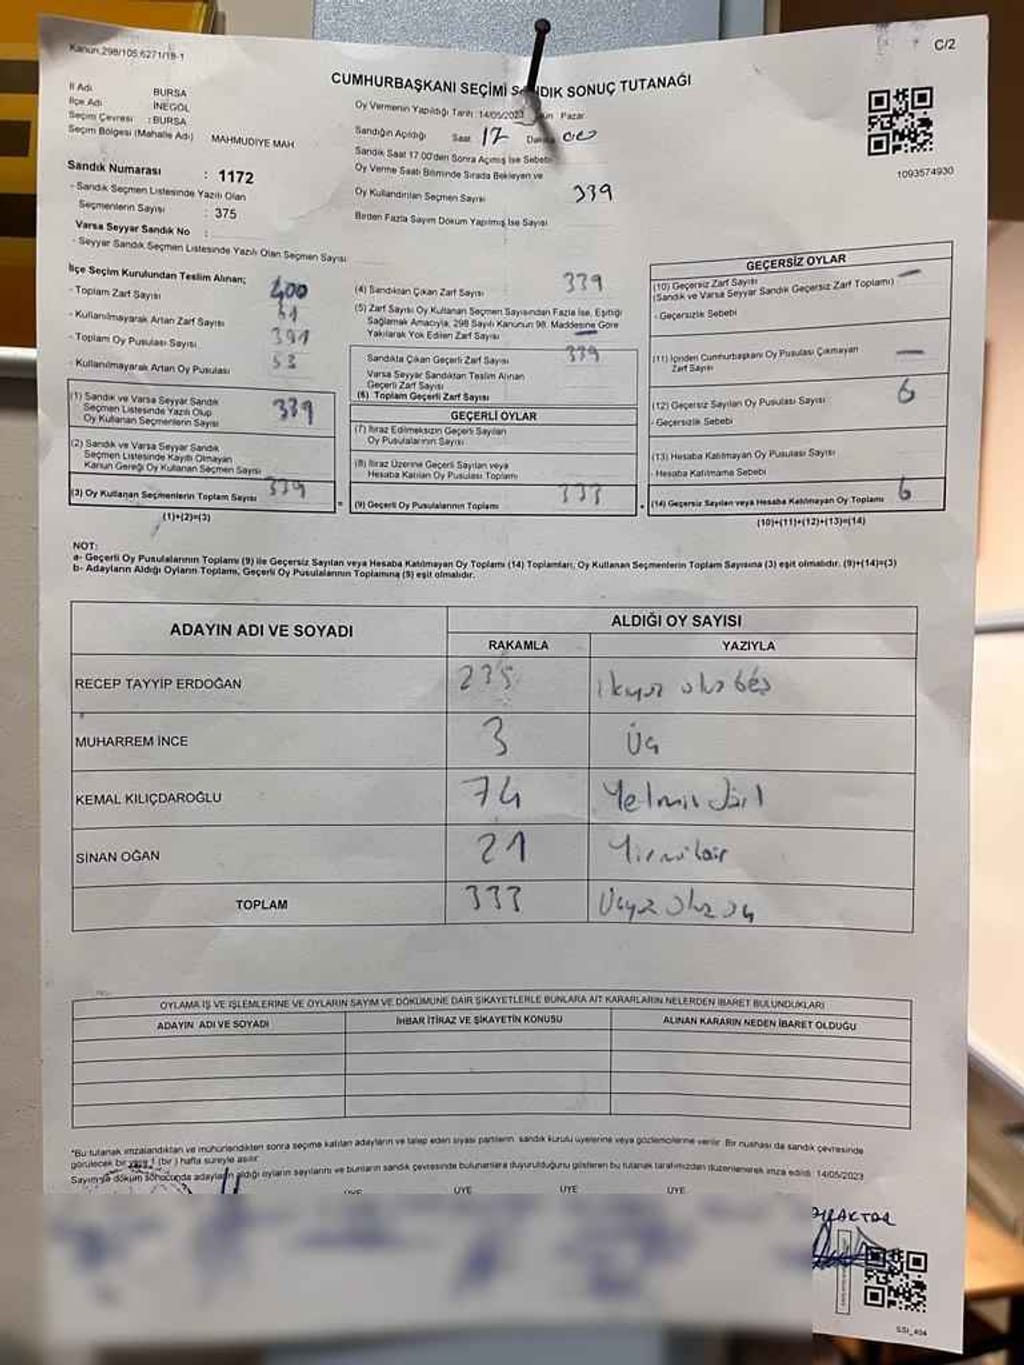 Kanun.298/105.6271/18-1
C/2
CUMHURBAŞKANI SEÇİMİ SANDIK SONUÇ TUTANAĞI
İl Adı BURSA
İlçe Adı İNEGÖL
Seçim Çevresi : BURSA
Seçim Bölgesi (Mahalle Adı) MAHMUDİYE MAH
Sandık Numarası : 1172
- Sandık Seçmen Listesinde Yazılı Olan
Seçmenlerin Sayısı : 375
Varsa Seyyar Sandık No :
- Seyyar Sandık Seçmen Listesinde Yazılı Olan Seçmen Sayısı
Oy Vermenin Yapıldığı Tarih: 14/05/2023 Pazar
Sandığın Açıldığı Saat 17 Dakika 00
Sandık Saat 17.00'den Sonra Açılmış İse Sebebi
Oy Verme Saati Bitiminde Sırada Bekleyen ve
Oy Kullandırılan Seçmen Sayısı 339
Birden Fazla Sayım Döküm Yapılmış İse Sayısı
1093574930
İlçe Seçim Kurulundan Teslim Alınan;
- Toplam Zarf Sayısı 400
- Kullanılmayarak Artan Zarf Sayısı 61
- Toplam Oy Pusulası Sayısı 391
- Kullanılmayarak Artan Oy Pusulası 53
(1) Sandık ve Varsa Seyyar Sandık
Seçmen Listesinde Yazılı Olup
Oy Kullanan Seçmenlerin Sayısı 339
(2) Sandık ve Varsa Seyyar Sandık
Seçmen Listesinde Kayıtlı Olmayan
Kanun Gereği Oy Kullanan Seçmen Sayısı
(3) Oy Kullanan Seçmenlerin Toplam Sayısı 339
(1)+(2)=(3)
(4) Sandıktan Çıkan Zarf Sayısı 339
(5) Zarf Sayısı Oy Kullanan Seçmen Sayısından Fazla İse, Eşitliği
Sağlamak Amacıyla, 298 Sayılı Kanunun 98. Maddesine Göre
Yakılarak Yok Edilen Zarf Sayısı —
Sandıkta Çıkan Geçerli Zarf Sayısı 339
Varsa Seyyar Sandıktan Teslim Alınan
Geçerli Zarf Sayısı
(6) Toplam Geçerli Zarf Sayısı
GEÇERLİ OYLAR
(7) İtiraz Edilmeksizin Geçerli Sayılan
Oy Pusulalarının Sayısı
(8) İtiraz Üzerine Geçerli Sayılan veya
Hesaba Katılan Oy Pusulası Toplamı
(9) Geçerli Oy Pusulalarının Toplamı 333
GEÇERSİZ OYLAR
(10) Geçersiz Zarf Sayısı —
(Sandık ve Varsa Seyyar Sandık Geçersiz Zarf Toplamı)
- Geçersizlik Sebebi
(11) İçinden Cumhurbaşkanı Oy Pusulası Çıkmayan
Zarf Sayısı —
(12) Geçersiz Sayılan Oy Pusulası Sayısı 6
- Geçersizlik Sebebi
(13) Hesaba Katılmayan Oy Pusulası Sayısı
- Hesaba Katılmama Sebebi
(14) Geçersiz Sayılan veya Hesaba Katılmayan Oy Toplamı 6
(10)+(11)+(12)+(13)=(14)
NOT:
a- Geçerli Oy Pusulalarının Toplamı (9) ile Geçersiz Sayılan veya Hesaba Katılmayan Oy Toplamı (14) Toplamları, Oy Kullanan Seçmenlerin Toplam Sayısına (3) eşit olmalıdır. (9)+(14)=(3)
b- Adayların Aldığı Oyların Toplamı, Geçerli Oy Pusulalarının Toplamına (9) eşit olmalıdır.
ADAYIN ADI VE SOYADI
ALDIĞI OY SAYISI
RAKAMLA YAZIYLA
RECEP TAYYİP ERDOĞAN 235 ikiyüz otuz beş
MUHARREM İNCE 3 Üç
KEMAL KILIÇDAROĞLU 74 Yetmiş dört
SİNAN OĞAN 21 Yirmibir
TOPLAM 333 Üçyüz otuz üç
OYLAMA İŞ VE İŞLEMLERİNE VE OYLARIN SAYIM VE DÖKÜMÜNE DAİR ŞİKAYETLERLE BUNLARA AİT KARARLARIN NELERDEN İBARET BULUNDUKLARI
ADAYIN ADI VE SOYADI İHBAR İTİRAZ VE ŞİKAYETİN KONUSU ALINAN KARARIN NEDEN İBARET OLDUĞU
*Bu tutanak imzalandıktan ve mühürlendikten sonra seçime katılan adayların ve talep eden siyasi partilerin sandık kurulu üyelerine veya gözlemcilerine verilir. Bir nushası da sandık çevresinde
görülecek bir yere 1 (bir) hafta süreyle asılır.
Sayım ve döküm sonucunda adayların aldığı oyların sayılarını ve bunların sandık çevresinde bulunanlara duyurulduğunu gösteren bu tutanak tarafımızdan düzenlenerek imza edildi. 14/05/2023
ÜYE ÜYE ÜYE ÜYE
SSI_404